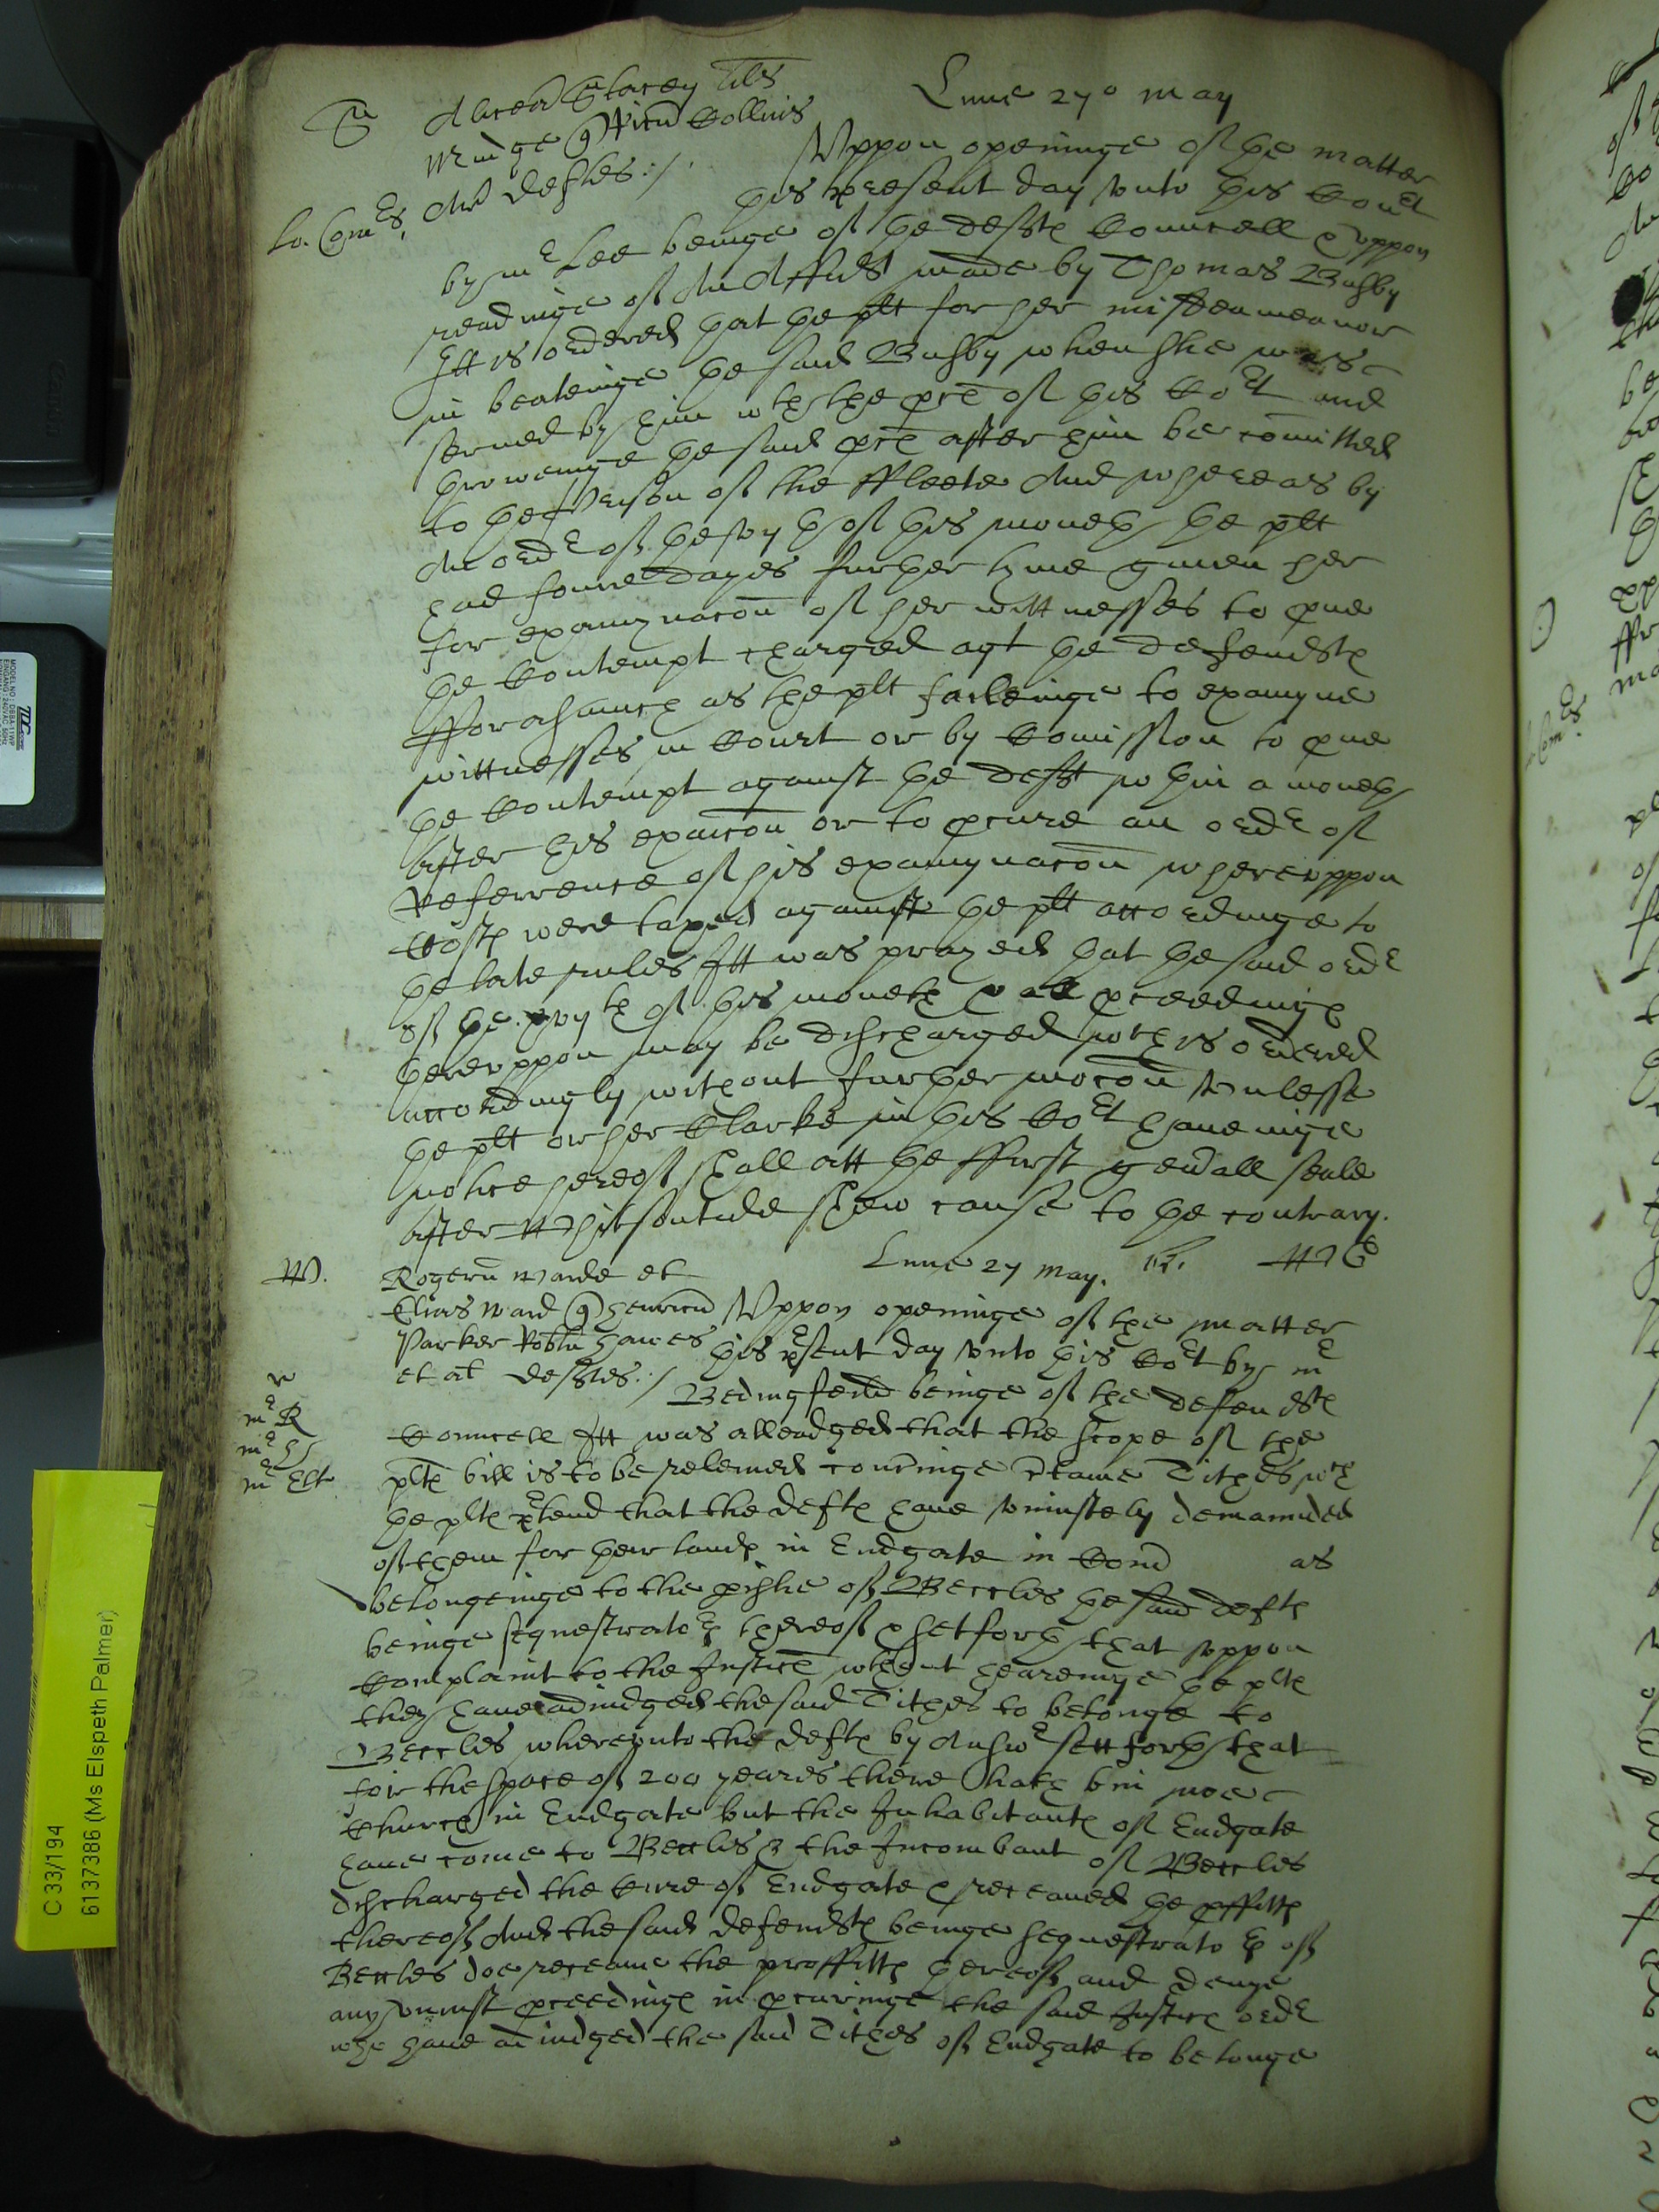 Lune 27º May
S Aliceā Stacey als
Mudge Ricūm Collins
Ar̃ deftes:/
Lo. Com̃rs
Vppon openinge of the matter
this present day vnto this Court
by mr Lee beinge of the defts Councell & vppon
readinge of An Affidt made by Thomas Bushby
Itt is ordered that the plt for her misdemeanor
in beateinge the said Bushby when she was
serued by him wth the prc̃ of this Cort and
throweinge the said prc̃ after him be com̃itted
to the Prison of the Fleete And whereas by
An ordr of the xvjth of this moneth the plt
had foure dayes further tyme giuen her
for examynac̃on of her wittnesses to proue
the Contempt charged agt the defendts
Forasmuch as the plt faileinge to examyne
wittnesses in Court or by Com̃ission to proue
the Contempt against the deft wthin a moneth
after his exaĩac̃on or to procure an ordr of
Referrence of his examynac̃on wherevppon
Costs were taxed against the plt accordinge to
the late rules Itt was prayed that the said ordr
of the xvjth of this moneth & all proceedings
therevppon may be discharged wch is ordered
accordingly without further moc̃on Vnlesse
the plt or her Clarke in this Cort haueinge
notice hereof shall att the first gen̄all seale
after Whitsontide shew cause to the contrary.
W.
Lune 27 May.
Rogerū Warde et
Elias Ward Henricū
Parker Robtū
et al̃ deftes:/
Vppon openinge of the matter
this prsent day vnto this Cort by mr
Bedingfeild beinge of the defendts
mr R
mr
mr Elt
Councell Itt was alleadged that the scope of the
plts bill is to be releiued conc̃ninge c̃taine Tithes wch
the plts prtend that the defts haue vniustely demaunded
of them for their lands in Endgate in Com̃ as
belongeinge to the p̱ishe of Beccles the said defts
beinge sequestrators thereof & set forth that vppon
Complaint to the Justices wthout heareinge the plts
they haue adiudged the said Tithes to belonge to
Beccles wherevnto the defts by Answr sett forth that
for the space of 200 yeares there hath bin noe
Church in Endgate but the Inhabitants of Endgate
haue come to Beccles & the Incombant of Beccles
discharged the Cure of Endgate & receaued the proffitts
thereof And the said defendts beinge sequestrators of
Beccles doe receaue the proffitts thereof and denye
any vniust proceedings in procuringe the said Justices ordr
who haue adiudged the said Tithes of Endgate to belonge
C 33/194
6137386 (Ms Elspeth Palmer)